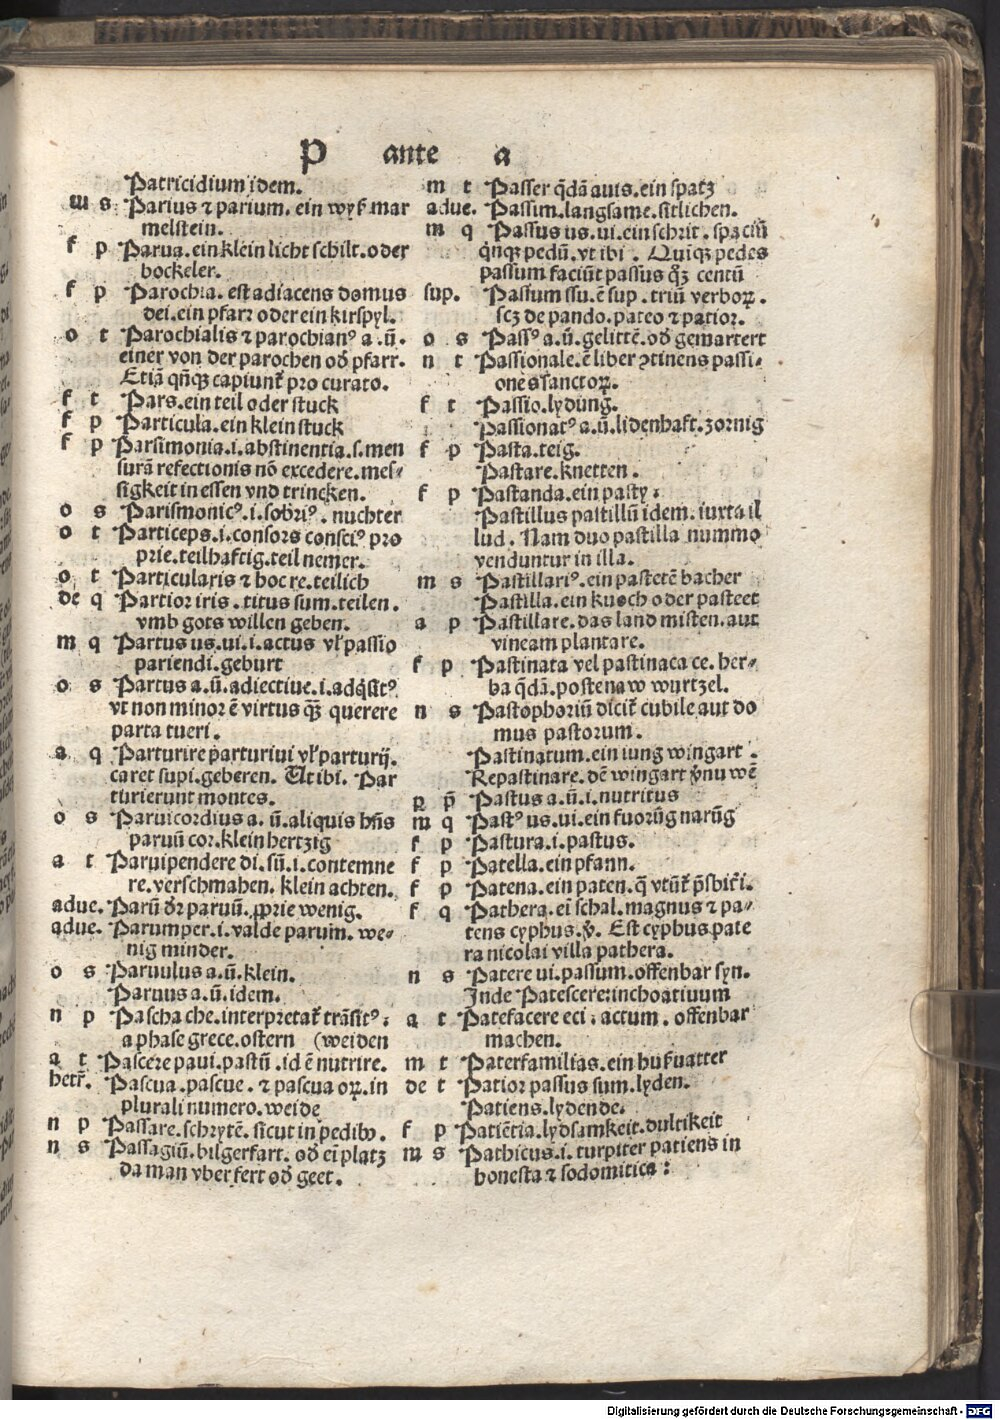 P ante a
Patricidium idem.
m s Parius ⁊ parium. ein wyß mar
melstein.
f p Parua. ein klein licht schilt. oder
bockeler.
f p Parochia. est adiacens domus
dei. ein pfarꝛ oder ein kirspyl.
o t Parochialis ⁊ parochianꝰ a. ū.
einer von der parochen oď pfarr.
Etiā qñqꝫ capiunt̄ pro curato.
f t Pars. ein teil oder stuck
f p Particula. ein klein stuck
f p Parsimonia. i. abstinentia. s. men
surā refectionis nō excedere. mes⸗
sigkeit in essen vnd trincken.
o s Parismonicꝰ. i. sobriꝰ. nuchter
o t Particeps. i. consors consciꝰ pro
prie. teilhaftig. teil nemer.
o t Particularis ⁊ hoc re. teilich
de q Partior iris. titus sum. teilen.
vmb gots willen geben.
m q Partus us. ui. i. actus vl̓ passio
pariendi. geburt
o s Partus a. ū. adiectiue. i. adq̇sitꝰ
vt non minor ē virtus qꝫ̄ querere
parta tueri.
a q Parturire parturiui vl̓ parturij.
caret supi. geberen. Ut ibi. Par
turierunt montes.
o s Paruicordius a. ū. aliquis hñs
paruū cor. klein hertzig
a t Paruipendere di. sū. i. contemne
re. verschmahen. klein achten.
adue. Parū ďr paruū. ꝓprie wenig.
adue. Parumper. i. valde parum. we⸗
nig minder.
o s Paruulus a. ū. klein.
Paruus a. ū. idem.
n p Pascha che. interpretat̄ trāsitꝰ.
a phase grece. ostern (weiden
a t Pascere paui. pastū. id ē nutrire.
hetr̄. Pascua. pascue. ⁊ pascua oꝝ. in
plurali numero. weide
n p Passare. schrytē. sicut in pedibꝰ.
n s Passagiū. bilgerfart. oď eī platz
da man vber fert oď geet.
m t Passer q̇dā auis. ein spatz
adue. Passim. langsame. sitlichen.
m q Passus us. ui. ein schrit. spaciū
q̇nqꝫ pedū. vt ibi. Quīqꝫ pedes
passum faciūt passus qꝫ̄ centū
sup. Passum ssu. ē sup. triū verboꝝ.
scꝫ de pando. pateo ⁊ patior.
o s Passꝰ a. ū. gelittē. oď gemartert
n t Passionale. ē liber ꝯtinens passi⸗
ones sanctoꝝ.
f t Passio. lydūng.
Passionatꝰ a. ū. lidenhaft. zornig
f p Pasta. teig.
Pastare. knetten.
f p Pastanda. ein pasty.
Pastillus pastillū idem. iuxta il
lud. Nam duo pastilla nummo
venduntur in illa.
m s Pastillariꝰ. ein pastetē bacher
Pastilla. ein kuoch oder pasteet
a p Pastillare. das land misten. aut
vineam plantare.
f p Pastinata vel pastinaca ce. her⸗
ba q̄dā. postenaw wurtzel.
n s Pastophoriū dicit̄ cubile aut do
mus pastorum.
Pastinatum. ein iung wingart.
Repastinare. dē wingart v̓nuwē
Pastus a. ū. i. nutritus
m q Pastꝰ us. ui. ein fuorūg narūg
f p Pastura. i. pastus.
f p Patella. ein pfann.
f p Patena. ein paten. q̄ vtūt̄ p̄sbit̓i.
f q Pathera. eī schal. magnus ⁊ pa⸗
tens cyphus. v̓. Est cyphus pate
ra nicolai villa pathera.
n s Patere ui. passum. offenbar syn.
Inde Patescere: inchoatiuum
a t Patefacere eci. actum. offenbar
machen.
m t Paterfamilias. ein hußuatter
de t Patior passus sum. lyden.
Patiens. lydende.
f p Patiētia. lydsamkeit. dultikeit
m s Pathicus. i. turpiter patiens in
honesta ⁊ sodomitica:
Digitalisierung gefördert durch die Deutsche Forschungsgemeinschaft - DFG